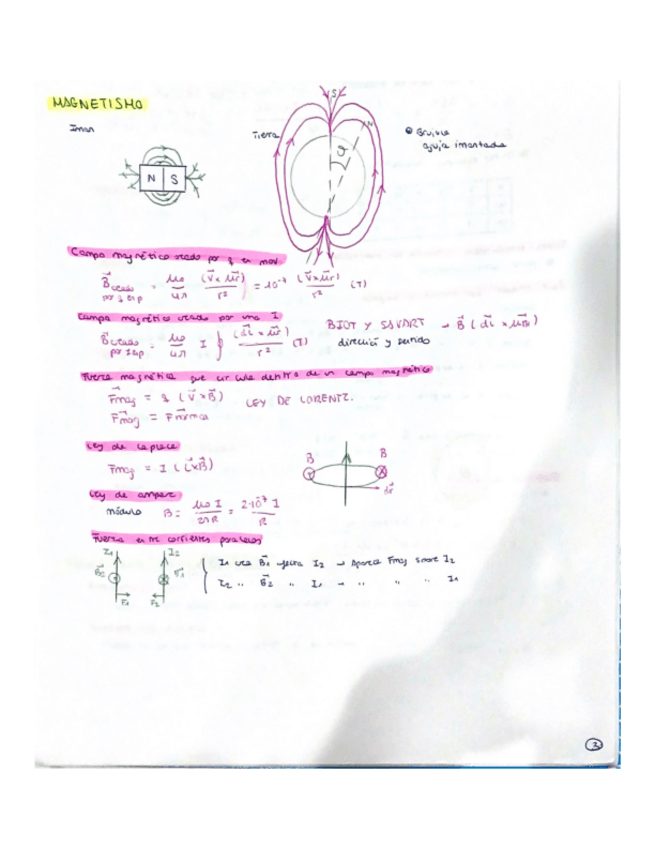 MAGNETISMO
Iman
Tierra
S
N
Brújula
aguja imantada
N S
Campo magnético creado por q en mov.
B⃗ creado por q en p = μ₀/4π (v⃗ × u⃗r)/r² = 10⁻⁷ (v⃗ × u⃗r)/r² (T)
Campo magnético creado por una I
B⃗ creado por I en p = μ₀/4π I ∮ (dl⃗ × u⃗r)/r² (T)
BIOT Y SAVART → B⃗ (dl⃗ × u⃗r)
dirección y sentido
Fuerza magnética que circula dentro de un campo magnético
F⃗mag = q (v⃗ × B⃗) LEY DE LORENTZ.
F⃗mag = F⃗norma
Ley de Laplace
F⃗mag = I (L⃗ × B⃗)
B B
Ley de ampere
módulo B = μ₀ I / 2πR = 2·10⁻⁷ I / R
Fuerza entre corrientes paralelas
I₁ I₂
B⃗₂ B⃗₁
F₁ F₂
I₁ crea B⃗₁ afecta I₂ → Aparece Fmag sobre I₂
I₂ " B⃗₂ " I₁ → " " " I₁
3